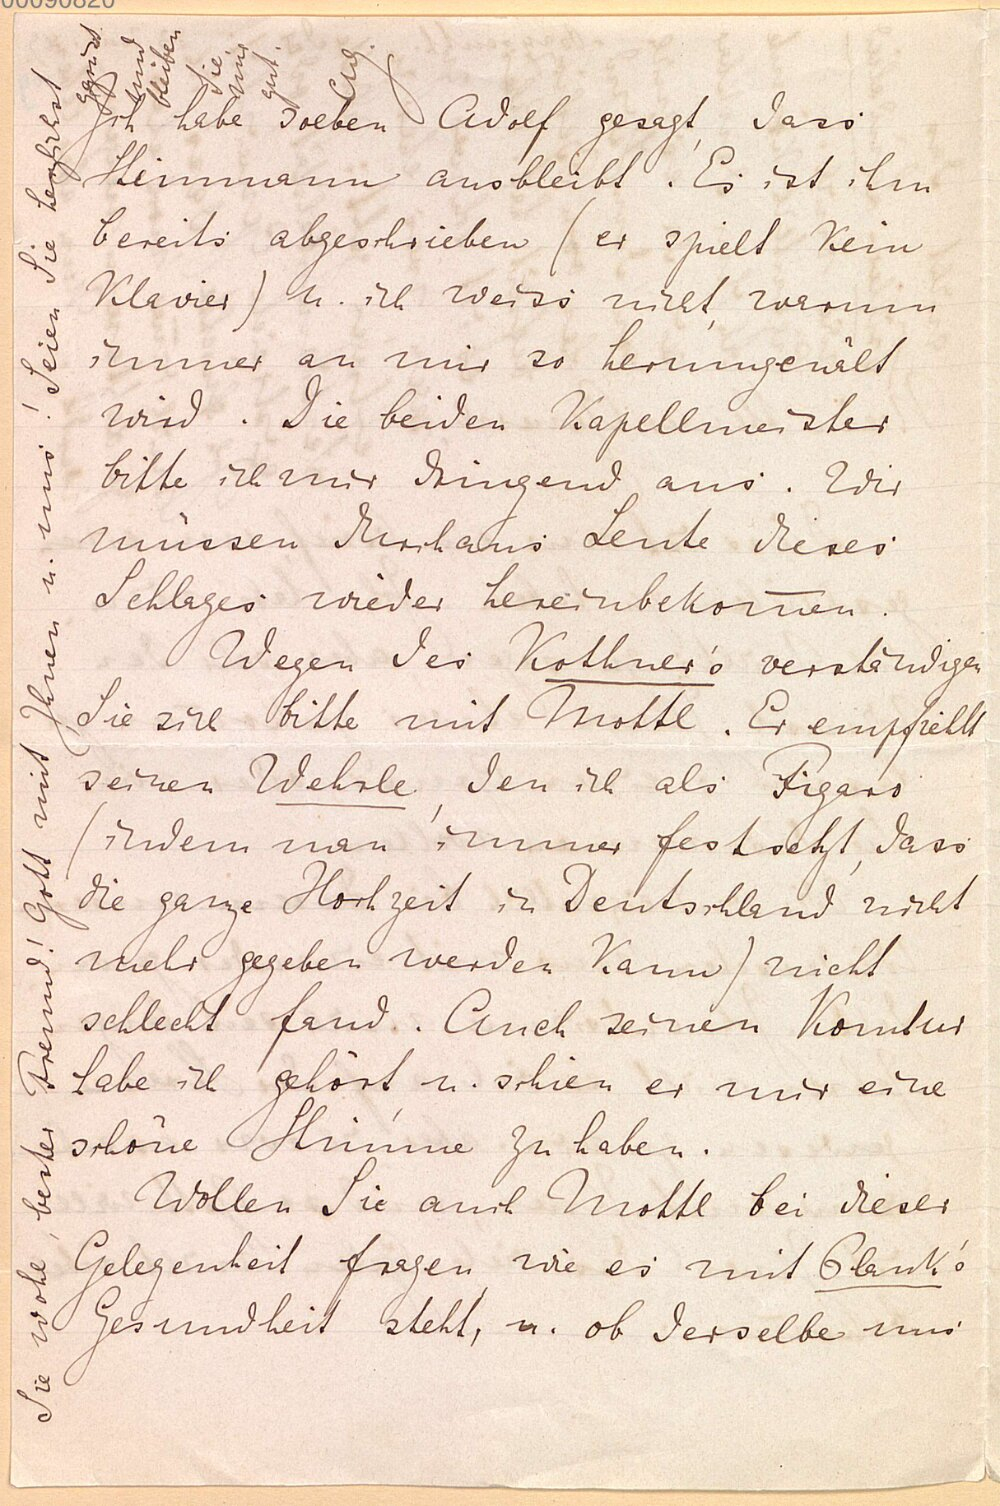 00090820
Ich habe soeben Adolf gesagt, dass
Heinmann ausbleibt. Es ist ihm
bereits abgeschrieben (er spielt kein
Klavier) u. ich weiss nicht, warum
immer an mir so herumgenält
wird. Die beiden Kapellmeister
bitte ich mir dringend aus. Wir
müssen durchaus Leute dieses
Schlages wieder hereinbekom̅en.
Wegen des Kothner's verständigen
Sie sich bitte mit Mottl. Er empfiehlt
seinen Wehrle, den ich als Figaro
(indem man immer festsetzt, dass
die ganze Hochzeit in Deutschland nicht
mehr gegeben werden kann) nicht
schlecht fand. Auch seinen Komtur
habe ich gehört u. schien er mir eine
schöne Stimme zu haben.
Wollen Sie auch Mottl bei dieser
Gelegenheit fragen, wie es mit Plank's
Gesundheit steht, u. ob derselbe uns
Sie wohl, bester Freund! Gott mit Ihnen u. uns! Seien Sie herzlichst
gegrüsst
und
bleiben
Sie
mir
gut.